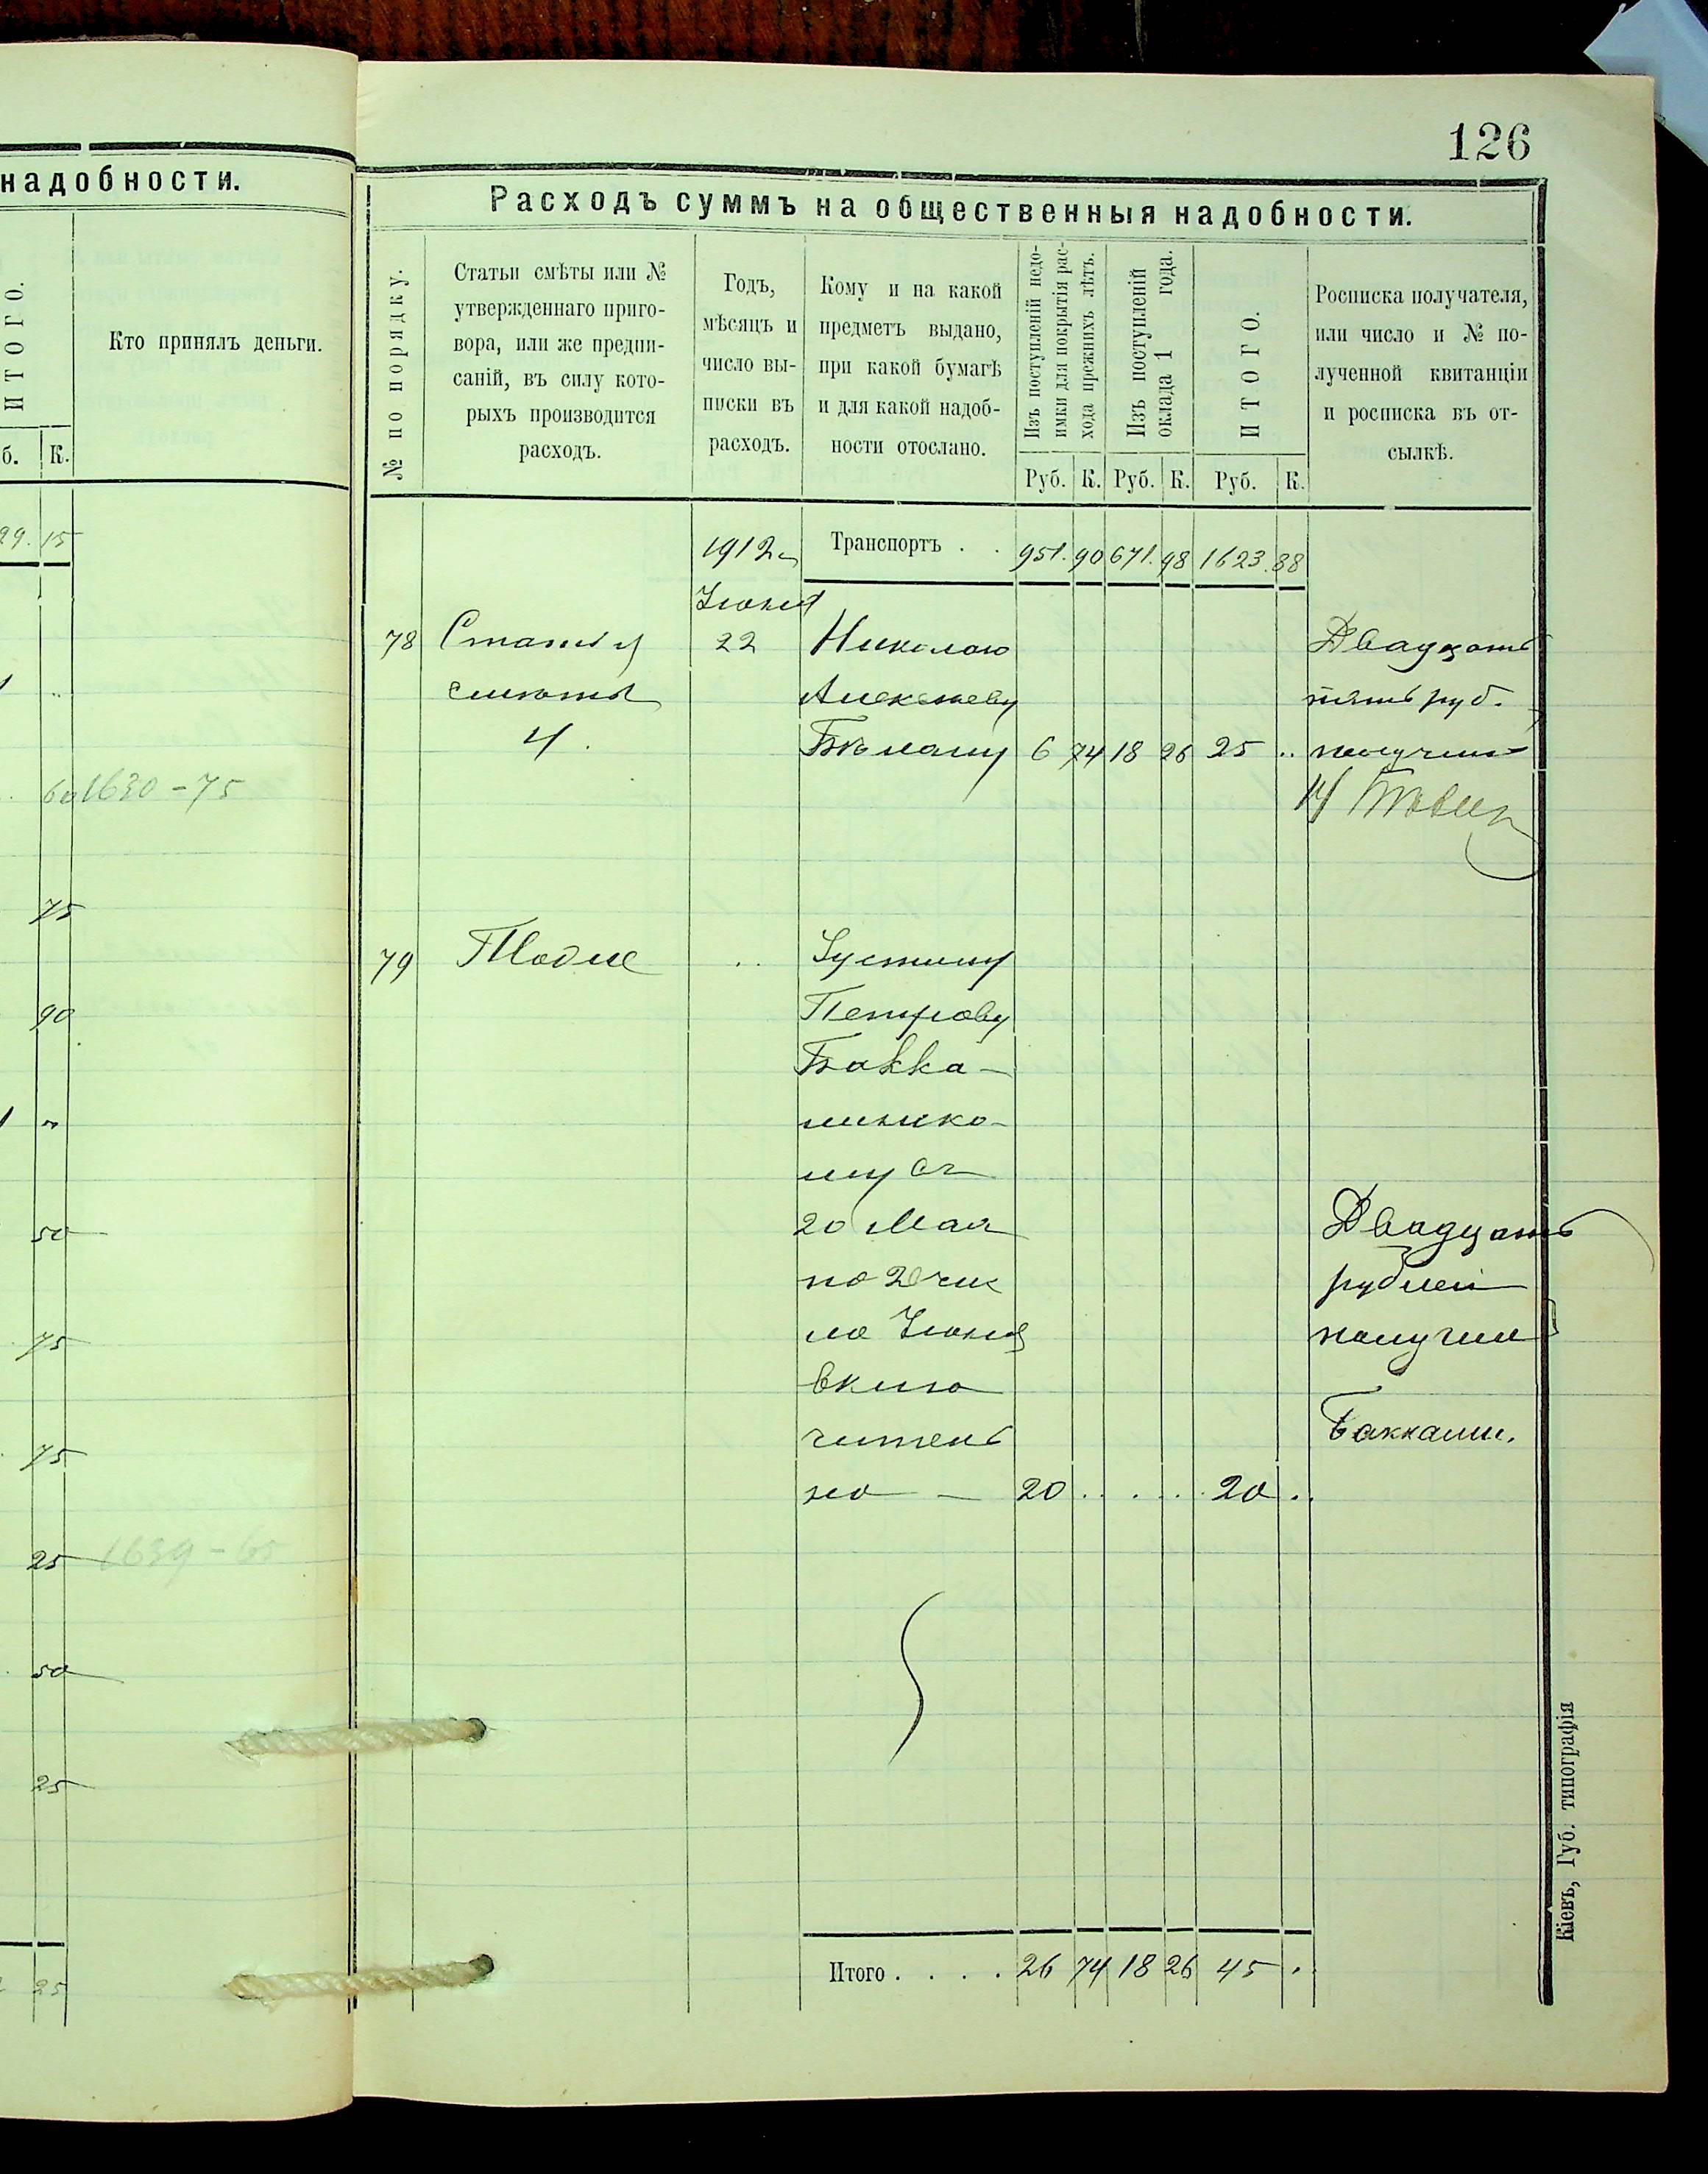 126
надобности.
ИТОГО.
Кто принялъ деньги.
б. К.
29. 15
60 1630-75
75
90
50
75
75
25 1639-65
50
25
25
Расходъ суммъ на общественныя надобности.
№ по порядку.
Статьи смѣты или №
утвержденнаго приго-
вора, или же предпи-
саній, въ силу кото-
рыхъ производится
расходъ.
Годъ,
мѣсяцъ и
число вы-
писки въ
расходъ.
Кому и на какой
предметъ выдано,
при какой бумагѣ
и для какой надоб-
ности отослано.
Изъ поступленій недо-
имки для покрытія рас-
хода прежнихъ лѣтъ.
Изъ поступленій
оклада 1 года.
ИТОГО.
Росписка получателя,
или число и № по-
лученной квитанціи
и росписка въ от-
сылкѣ.
Руб. К. Руб. К. Руб. К.
1912 Транспортъ . . 951. 90 671. 98 1623. 88
Іюня
78 Статья 22 Николаю Двадцать
смѣты Алексѣеву пять руб.
4. 6 74 18 26 25 .. получилъ
79 Тоже .. Іустину
Петрову
Бакка-
линско-
му съ
20 Мая Двадцать
по 20 чис рублей
ло Іюня получилъ
вклю
чительъ Баккалин.
но — 20 .. .. .. 20 ..
Итого . . . . 26 74 18 26 45 .
Кіевъ, Губ. типографія